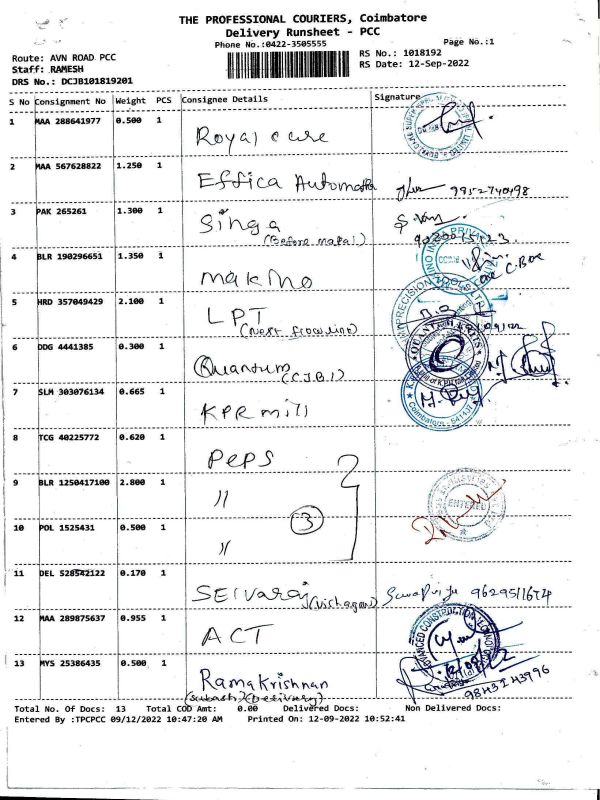 THE PROFESSIONAL COURIERS, Coimbatore
Delivery Runsheet - PCC
Phone No.:0422-3505555
Page No.:1
Route: AVN ROAD PCC
RS No.: 1018192
Staff: RAMESH
RS Date: 12-Sep-2022
DRS No.: DCJB101819201
S No Consignment No Weight PCS Consignee Details Signature
1 MAA 288641977 0.500 1 Royal care
2 MAA 567628822 1.250 1 Effica Automata 9952740498
3 PAK 265261 1.300 1 Singa
(Before makal)
4 BLR 190296651 1.350 1 makino
5 HRD 357049429 2.100 1 LPT
6 DDG 4441385 0.300 1 Quantum (C.J.B.1)
7 SLM 303076134 0.665 1 KPR mill
Coimbatore - 641407
8 TCG 40225772 0.620 1 Peps
9 BLR 1250417100 2.800 1 〃
ENTERED
3
10 POL 1525431 0.500 1 〃
11 DEL 528542122 0.170 1 Selvaraj (vishagan) 9629511674
12 MAA 289875637 0.955 1 ACT
ADVANCED CONSTRUCTION
12/09/22
13 MYS 25386435 0.500 1 Ramakrishnan
98431 43996
(Subash) (Delivery)
Total No. Of Docs: 13 Total COD Amt: 0.00 Delivered Docs: Non Delivered Docs:
Entered By :TPCPCC 09/12/2022 10:47:20 AM Printed On: 12-09-2022 10:52:41